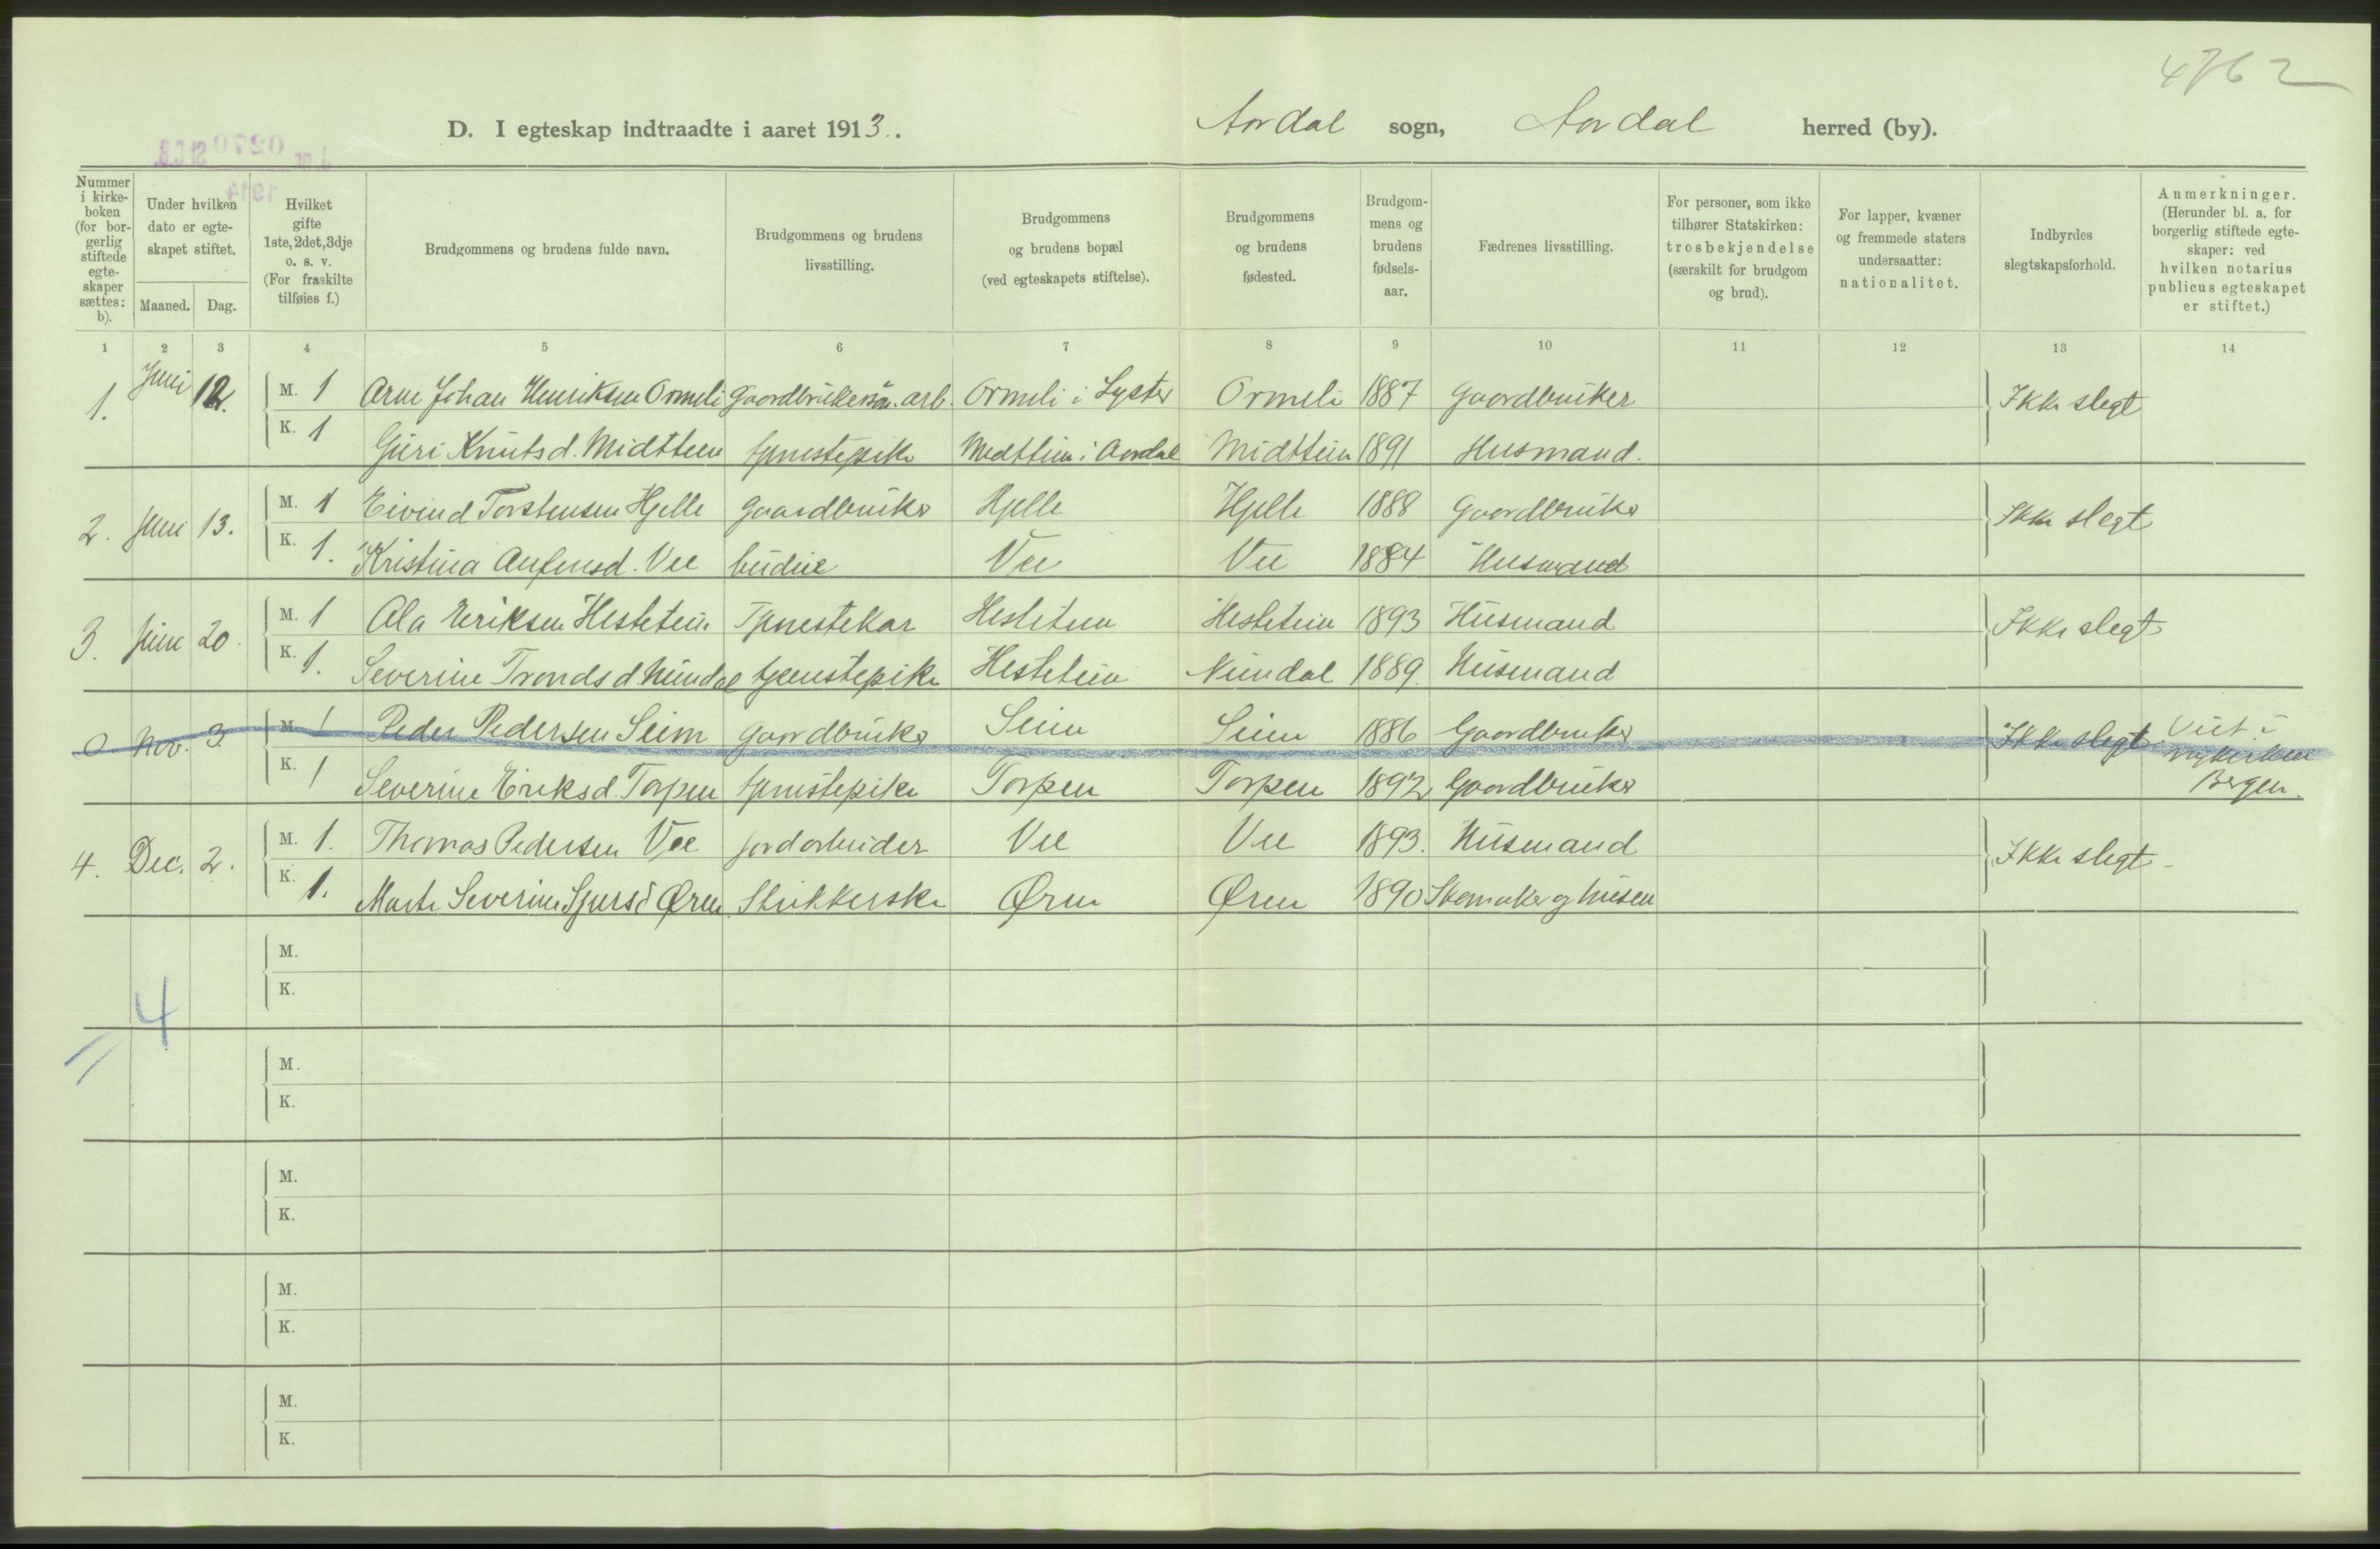 4762
D. I egteskap indtraadte i aaret 1913.
Aardal sogn, Aardal herred (by).
Nummer i kirkeboken (for borgerlig stiftede egteskaper sættes: b).
Under hvilken dato er egteskapet stiftet.
Maaned. Dag.
Hvilket gifte 1ste, 2det, 3dje o. s. v. (For fraskilte tilføies f.)
Brudgommens og brudens fulde navn.
Brudgommens og brudens livsstilling.
Brudgommens og brudens bopæl (ved egteskapets stiftelse).
Brudgommens og brudens fødested.
Brudgommens og brudens fødselsaar.
Fædrenes livsstilling.
For personer, som ikke tilhører Statskirken: trosbekjendelse (særskilt for brudgom og brud).
For lapper, kvæner og fremmede staters undersaatter: nationalitet.
Indbyrdes slegtskapsforhold.
Anmerkninger. (Herunder bl. a. for borgerlig stiftede egteskaper: ved hvilken notarius publicus egteskapet er stiftet.)
1 2 3 4 5 6 7 8 9 10 11 12 13 14
1. Juni 12. M. 1 Arne Johan Henriksen Ormeli Gaardbruker arb. Ormeli i Lyster Ormeli 1887 Gaardbruker Ikke slegt
K. 1 Guri Knutsd. Midttun tjenestepike Midttun i Aardal Midttun 1891 Husmand.
2. Juni 13. M. 1 Eivind Torstensen Hjelle Gaardbruker Hjelle Hjelle 1888 Gaardbruker Ikke slegt
K. 1. Kristina Anfinsd. Vee budeie Vee Vee 1884 Husmand
3. Juni 20. M. 1 Ola Eriksen Hestetun Tjenestekar Hestetun Hestetun 1893 Husmand Ikke slegt
K. 1. Severine Trondsd Nundal tjenestepike Hestetun Nundal 1889. Husmand
0 Nov. 3. M. 1 Peder Pedersen Seim Gaardbruker Seim Seim 1886 Gaardbruker Ikke slegt. Viet i nykirken Bergen.
K. 1 Severine Eriksd. Torpen tjenestepike Torpen Torpen 1892 Gaardbruker
4. Dec. 2. M. 1. Thomas Pedersen Vee jordarbeider Vee Vee 1893. Husmand Ikke slegt
K. 1. Marta Severine Sjursd Øren Strikkerske Øren Øren 1890 Skomaker og husm
M.
K.
4
M.
K.
M.
K.
M.
K.
M.
K.